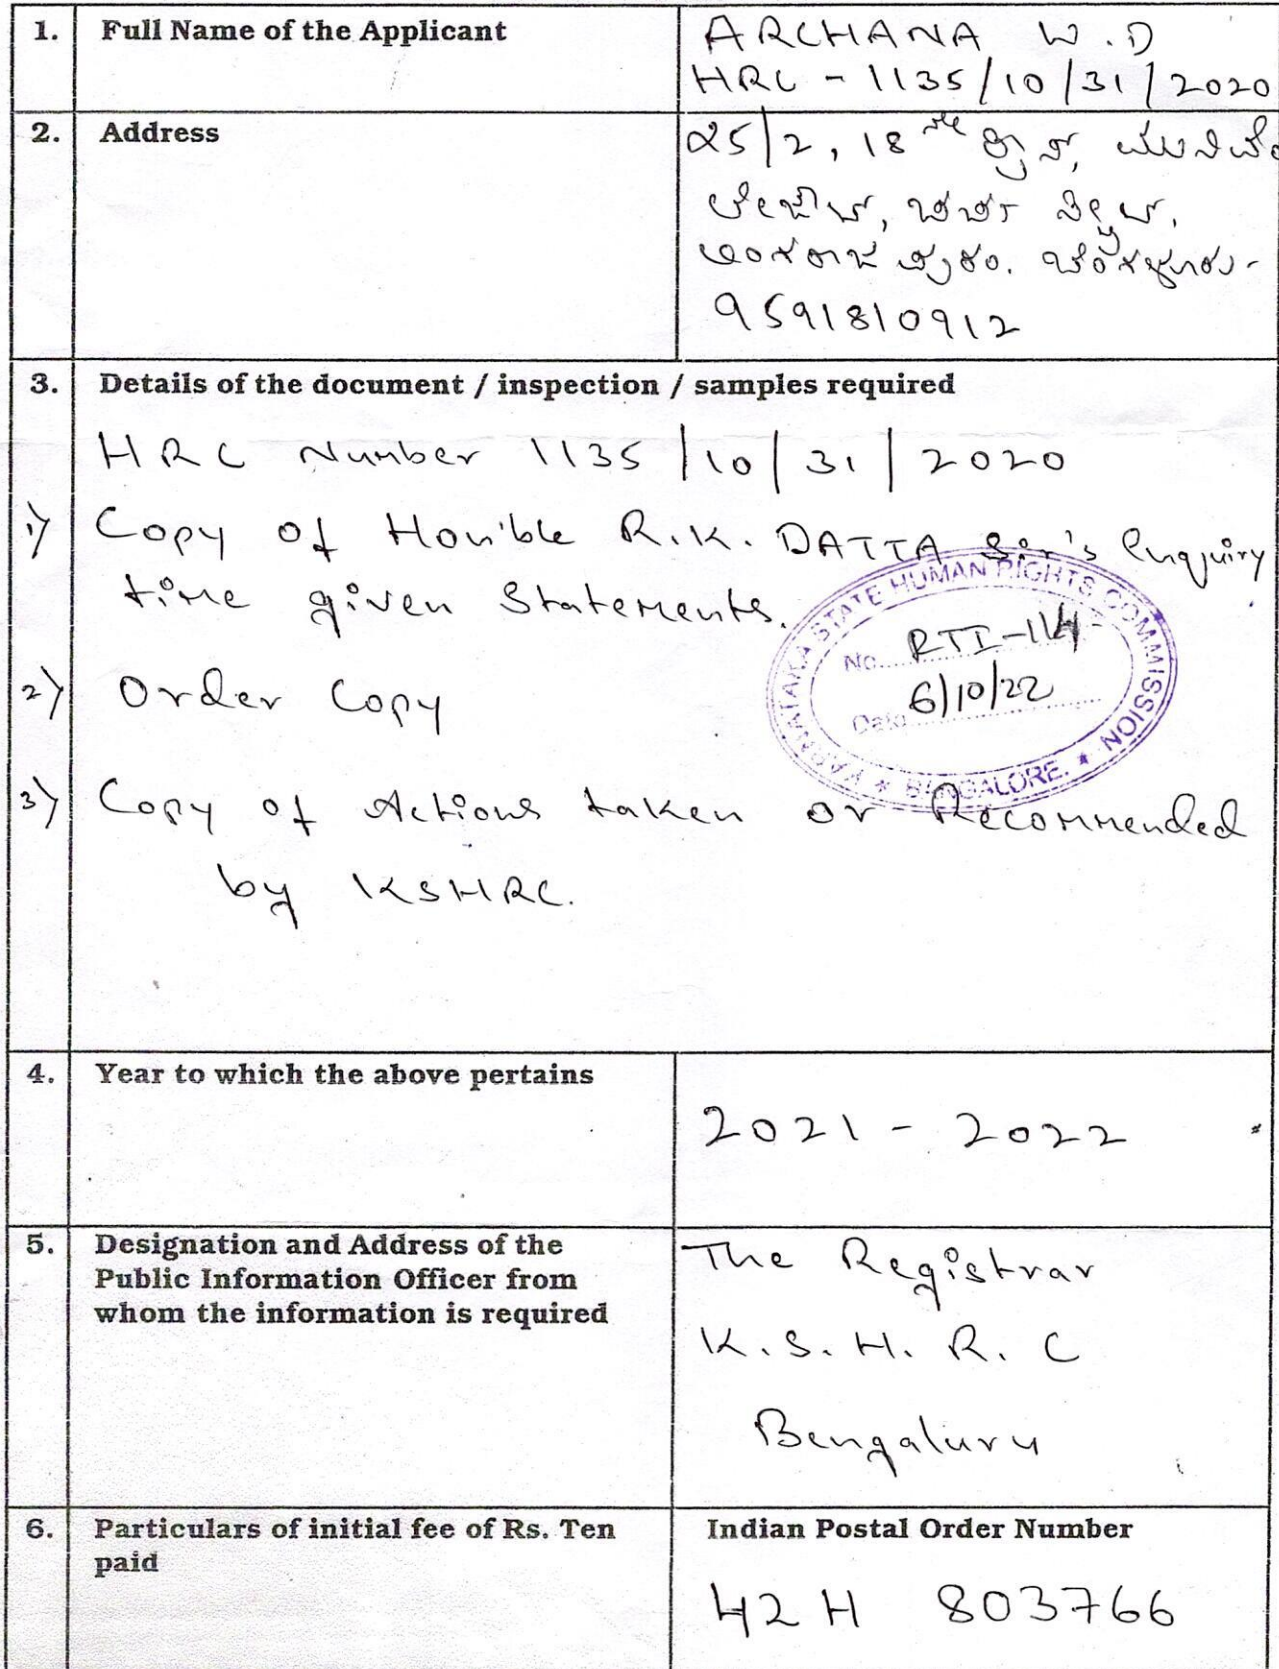 1. Full Name of the Applicant
ARCHANA W.D
HRC - 1135/10/31/2020
2. Address
25/2, 18ನೇ ಕ್ರಾಸ್,
ಚರ್ಚ್
ಲಿಂಗರಾಜ ಪುರಂ. ಬೆಂಗಳೂರು-
9591810912
3. Details of the document / inspection / samples required
HRC Number 1135/10/31/2020
1) Copy of Hon'ble R.K. DATTA Sir's Enquiry
time given Statements.
2) Order Copy
3) Copy of Actions taken or Recommended
by KSHRC.
KARNATAKA STATE HUMAN RIGHTS COMMISSION
No. RTI-114
Date 6/10/22
* BANGALORE. *
4. Year to which the above pertains
2021 - 2022
5. Designation and Address of the
Public Information Officer from
whom the information is required
The Registrar
K.S.H.R.C
Bengaluru
6. Particulars of initial fee of Rs. Ten
paid
Indian Postal Order Number
42 H 803766